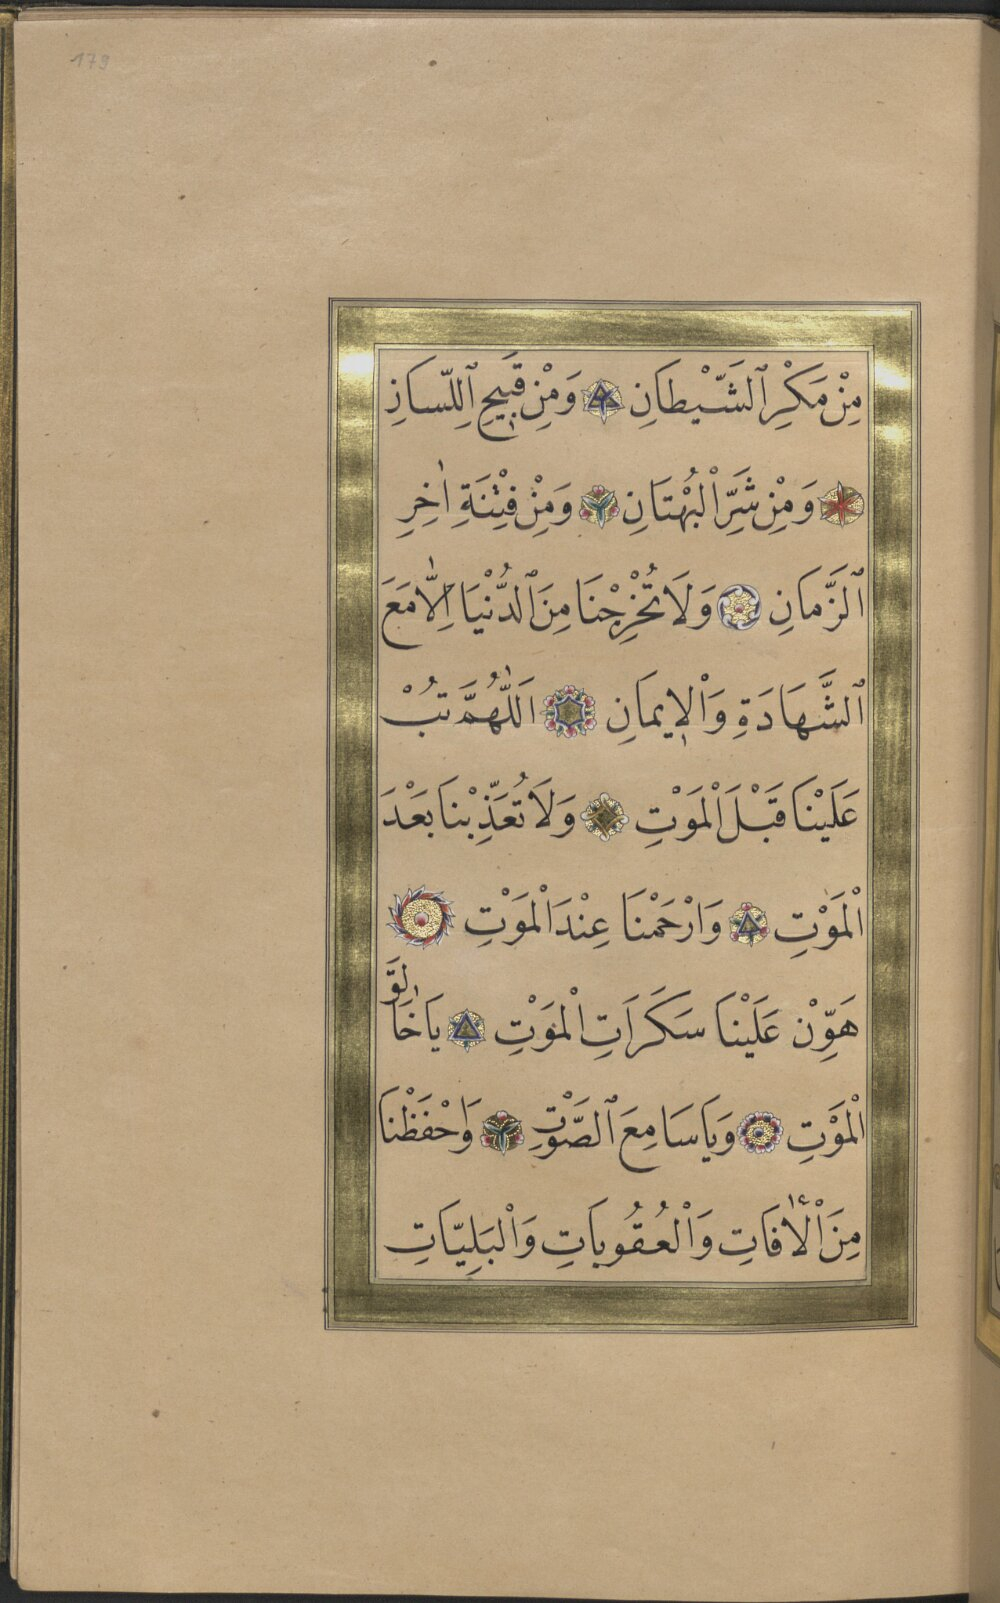 179
مِنْ مَكْرِ ٱلشَّيْطَانِ وَمِنْ قَبِيحِ ٱللِّسَانِ
وَمِنْ شَرِّ الْبُهْتَانِ وَمِنْ فِتْنَةِ اٰخِرِ
ٱلزَّمَانِ وَلَا تُخْرِجْنَا مِنَ ٱلدُّنْيَا اِلَّا مَعَ
ٱلشَّهَادَةِ وَالْإِيمَانِ اَللّٰهُمَّ تُبْ
عَلَيْنَا قَبْلَ الْمَوْتِ وَلَا تُعَذِّبْنَا بَعْدَ
الْمَوْتِ وَارْحَمْنَا عِنْدَ الْمَوْتِ
هَوِّنْ عَلَيْنَا سَكَرَاتِ الْمَوْتِ يَا خَالِقَ
الْمَوْتِ وَيَا سَامِعَ ٱلصَّوْتِ وَاحْفَظْنَا
مِنَ الْاٰفَاتِ وَالْعُقُوبَاتِ وَالْبَلِيَّاتِ